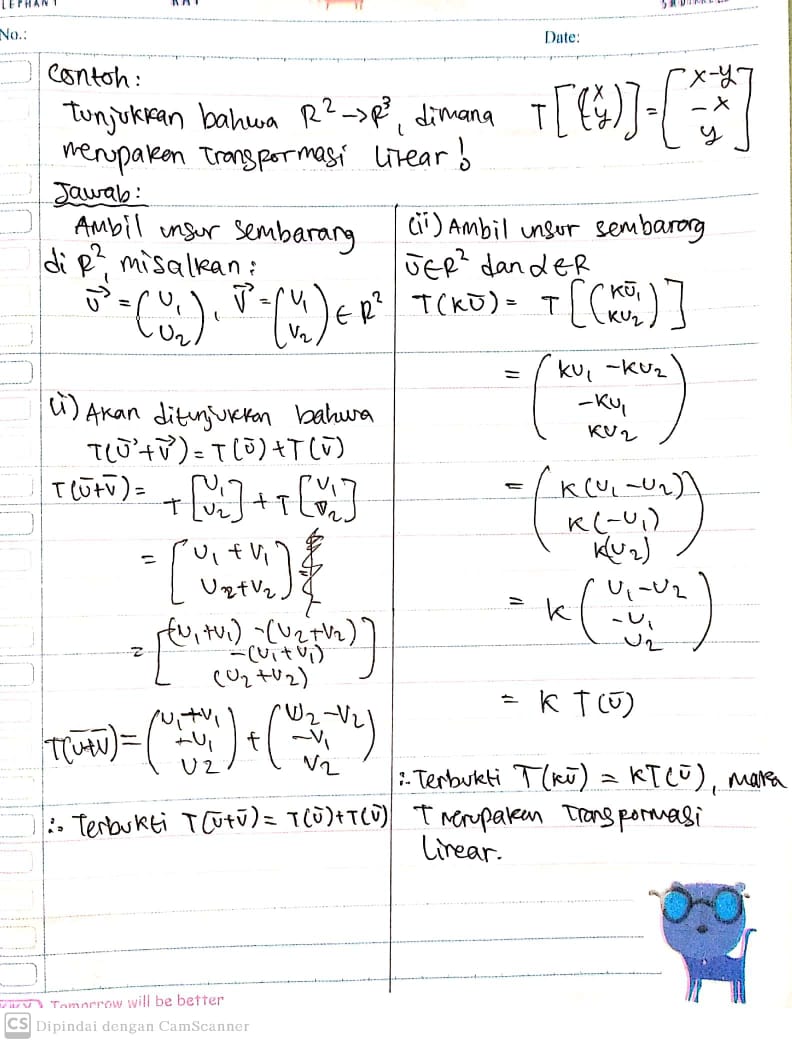 No.:
Date:
Contoh:
Tunjukkan bahwa R² → R³, dimana T[(x y)] = [x-y -x y]
merupakan Transpormasi linear!
Jawab:
Ambil unsur sembarang
di R², misalkan:
u⃗ = (u₁ u₂), v⃗ = (v₁ v₂) ∈ R²
(i) Akan ditunjukkan bahwa
T(ū+v⃗) = T(ū)+T(v̄)
T(ū+v̄) = T[u₁ u₂] + T[v₁ v₂]
= [u₁+v₁
u₂+v₂]
= [(u₁+v₁) -(u₂+v₂)
-(u₁+v₁)
(u₂+v₂)]
T(ū+v̄) = (u₁+v₁ +u₁ u₂) + (u₂-v₂ -v₁ v₂)
∴ Terbukti T(ū+v̄) = T(ū)+T(v̄)
(ii) Ambil unsur sembarang
ū∈R² dan α∈R
T(kū) = T[(kū₁ ku₂)]
= (ku₁ - ku₂
-ku₁
ku₂)
= (k(u₁-u₂)
k(-u₁)
k(u₂))
= k (u₁-u₂
-u₁
u₂)
= k T(ū)
∴ Terbukti T(kū) = kT(ū), maka
T merupakan Transpormasi
linear.
Tomorrow will be better
CS Dipindai dengan CamScanner